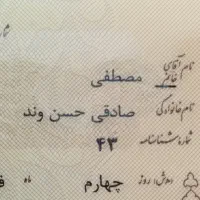 نام آقای / خانم مصطفی
نام خانوادگی صادقی حسن وند
شماره شناسنامه ۴۳
روز چهارم ماه